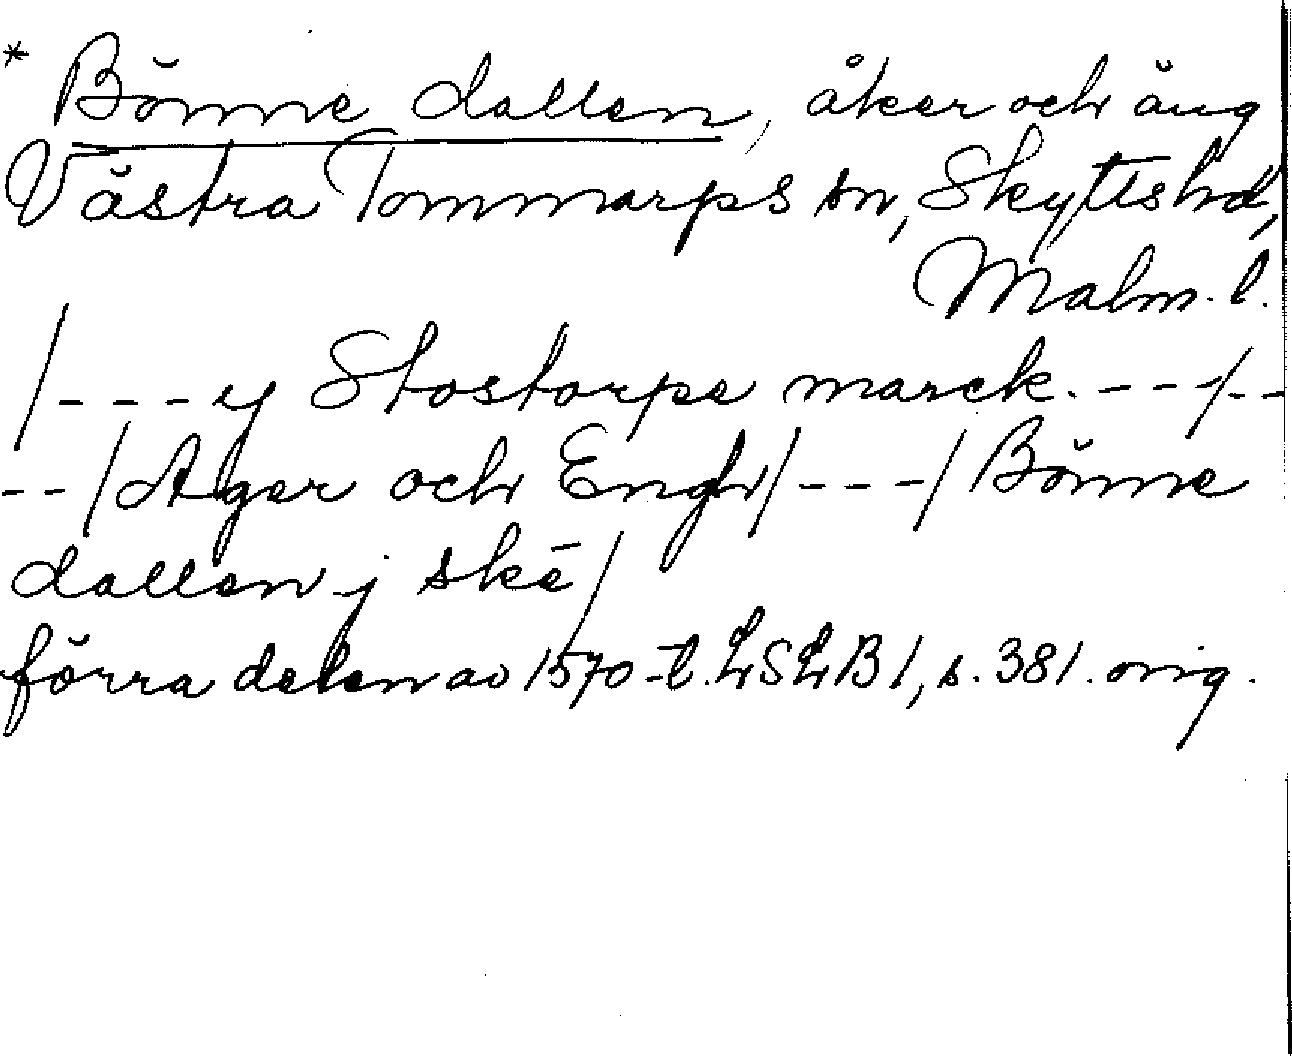 * Bönne dallen, åker och äng
Västra Tommarps sn, Skytts hd,
Malm. l.
/---y Stostorps marck.---/--
--/Ager och Engh/---/Bönne
dallen j skē/
förra delen av 1570-t. LSLB1, s. 381. orig.